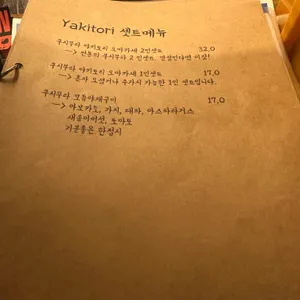 Yakitori 셋트메뉴
쿠시무라 야키토리 오마카세 2인셋트 32.0
→ 전통의 쿠시무라 2인셋트. 결정안되면 이것!
쿠시무라 야키토리 오마카세 1인셋트 17.0
→ 혼자 오셨거나 추가시 가능한 1인 셋트입니다.
쿠시무라 모듬야채구이 17.0
→ 아보카도, 가지, 대파, 아스파라거스
새송이버섯, 토마토
기분좋은 한접시